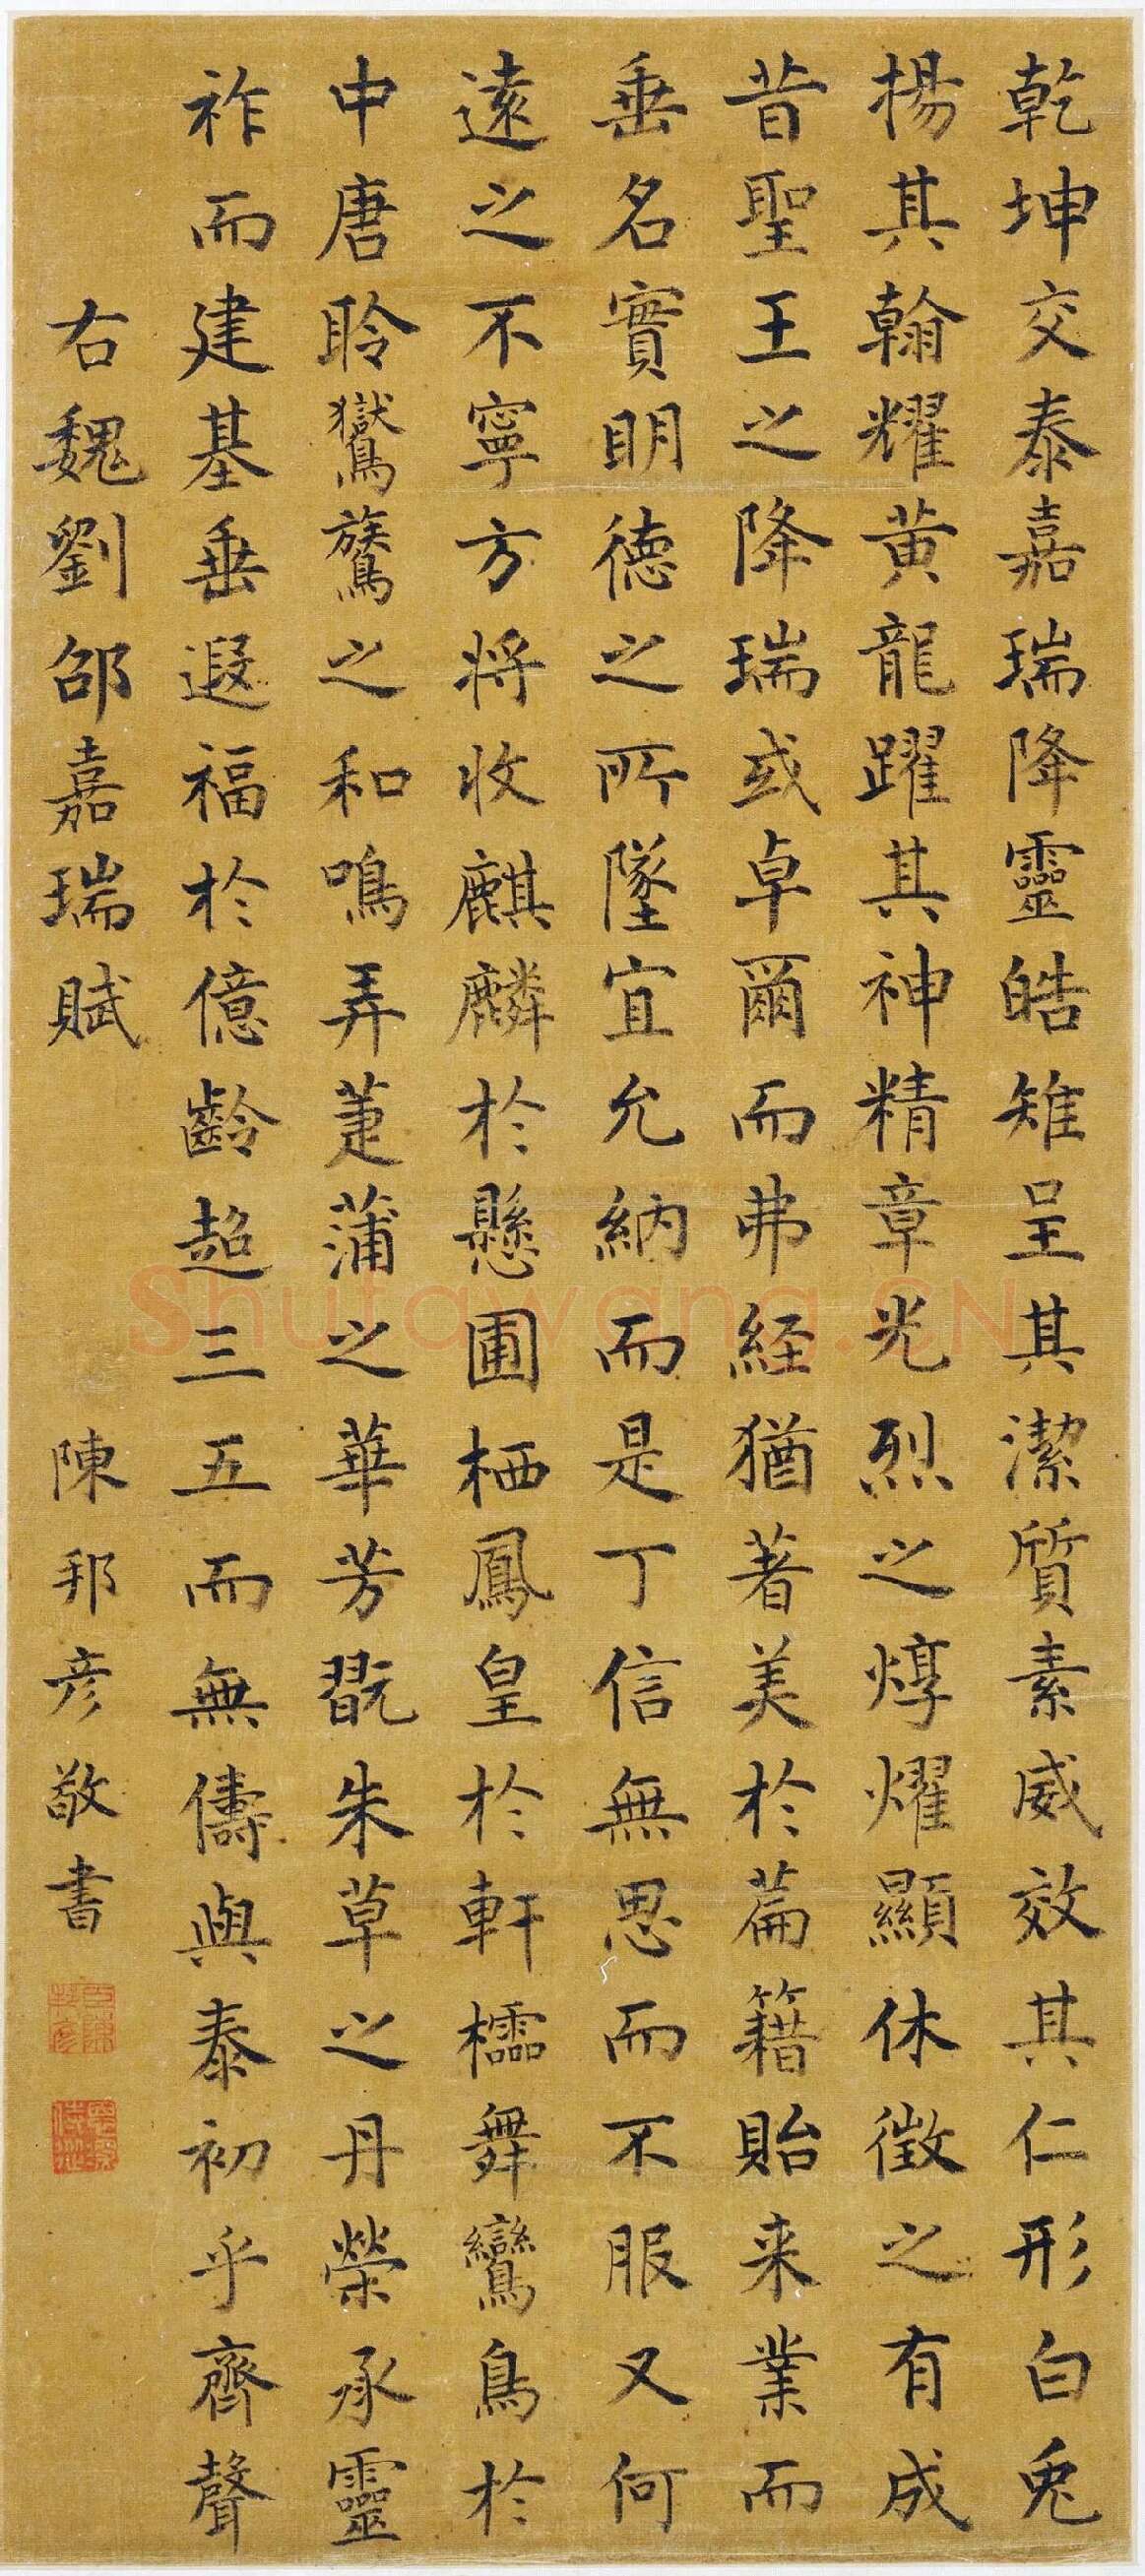 乾坤交泰嘉瑞降靈皓雉呈其潔質素威效其仁形白兎
揚其翰耀黃龍躍其神精章光烈之焞燿顯休徵之有成
昔聖王之降瑞或卓爾而弗経猶著美於篇籍貽来業而
垂名實明德之所墜宜允納而是丁信無思而不服又何
遠之不寧方将收麒麟於懸圃栖鳳皇於軒櫺舞鸞鳥於
中唐聆鸑鷟之和鳴弄萐蒲之華芳翫朱草之丹榮承靈
祚而建基垂遐福於億齡超三五而無儔與泰初乎齊聲
右魏劉邵嘉瑞賦
陳邦彦敬書
Shufawang.CN